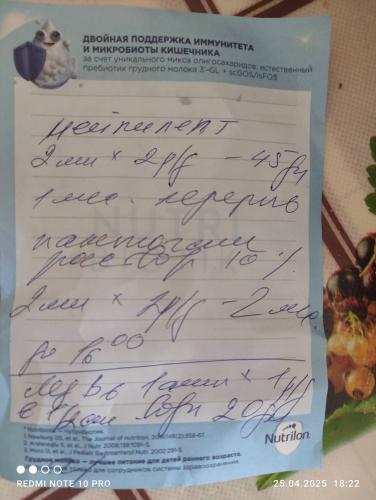 ДВОЙНАЯ ПОДДЕРЖКА ИММУНИТЕТА
И МИКРОБИОТЫ КИШЕЧНИКА
за счет уникального микса олигосахаридов: естественный
пребиотик грудного молока 3'-GL + scGOS/lcFOS
Нейпилепт
2 мл x 2 р/д - 45 дн
1 мес. перерыв
пантогам
раствор 10 %
2 мл x 2р/д - 2 мес.
до 16 00
Mg B6 1 амп x 1 р/д
в воды 20 дн
Nutrilon
Грудное молоко — лучшее питание для детей раннего возраста.
только для сотрудников системы здравоохранения.
REDMI NOTE 10 PRO
25.04.2025 18:22